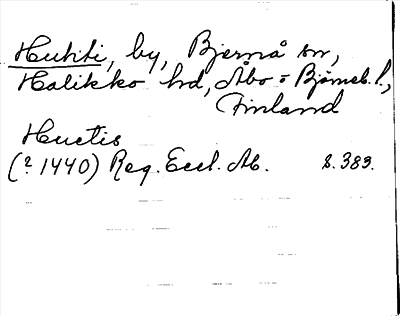 Huhti, by, Bjernå sn,
Halikko hd, Åbo o Björneb. l.,
Finland
Huctis
(? 1440) Reg. Eccl. Ab. s. 383.